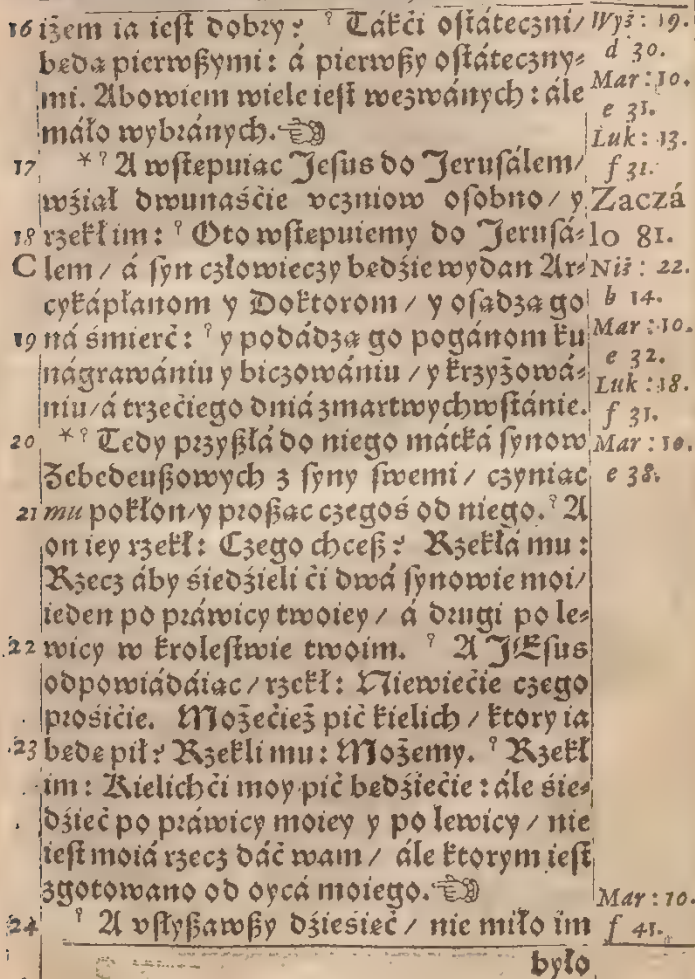 16 iżem ia iest dobry: ˀ Tákći ostáteczni/ Wyż: 19.
bedą pierwßymi: á pierwßy ostáteczny⸗ d 30.
mi. Abowiem wiele iest wezwánych: ále Mar: 10.
máło wybránych.☜ e 31.
Luk: 13.
17 *ˀ A wstepuiąc Jesus do Jerusálem/ f 31.
wźiął dwunaśćie vczniow osobno/ y Zaczá
18 rzekł im: ˀ Oto wstepuiemy do Jerusá⸗ lo 81.
C lem/ á syn człowieczy bedźie wydan Ar⸗ Niż: 22.
cykápłanom y Doktorom/ y osądzą go b 14.
19 ná śmierć: ˀ y podádzą go pogánom ku Mar: 10.
nágrawániu y biczowániu/ y krzyżowá⸗ e 32.
niu/ á trzećiego dniá zmartwychwstánie. Luk: 18.
f 31.
20 *ˀ Tedy przyßłá do niego mátká synow Mar: 10.
Zebedeußowych z syny swemi/ czyniąc e 38.
21 mu pokłon/ y proßąc czegoś od niego. ˀ A
on iey rzekł: Czego chceß: Rzekłá mu:
Rzecz áby śiedźieli ći dwá synowie moi/
ieden po práwicy twoiey/ á drugi po le⸗
22 wicy w krolestwie twoim. ˀ A JEsus
odpowiádáiąc/ rzekł: Niewiećie czego
prośićie. Możećież pić kielich/ ktory ia
23 bede pił: Rzekli mu: Możemy. ˀ Rzekł
im: Kielichći moy pić bedźiećie: ále śie⸗
dźieć po práwicy moiey y po lewicy/ nie
iest moiá rzecz dáć wam/ ále ktorym iest
zgotowano od oycá moiego.☜
Mar: 10.
24 ˀ A vsłyßawßy dźieśieć/ nie miło im f 41.
było